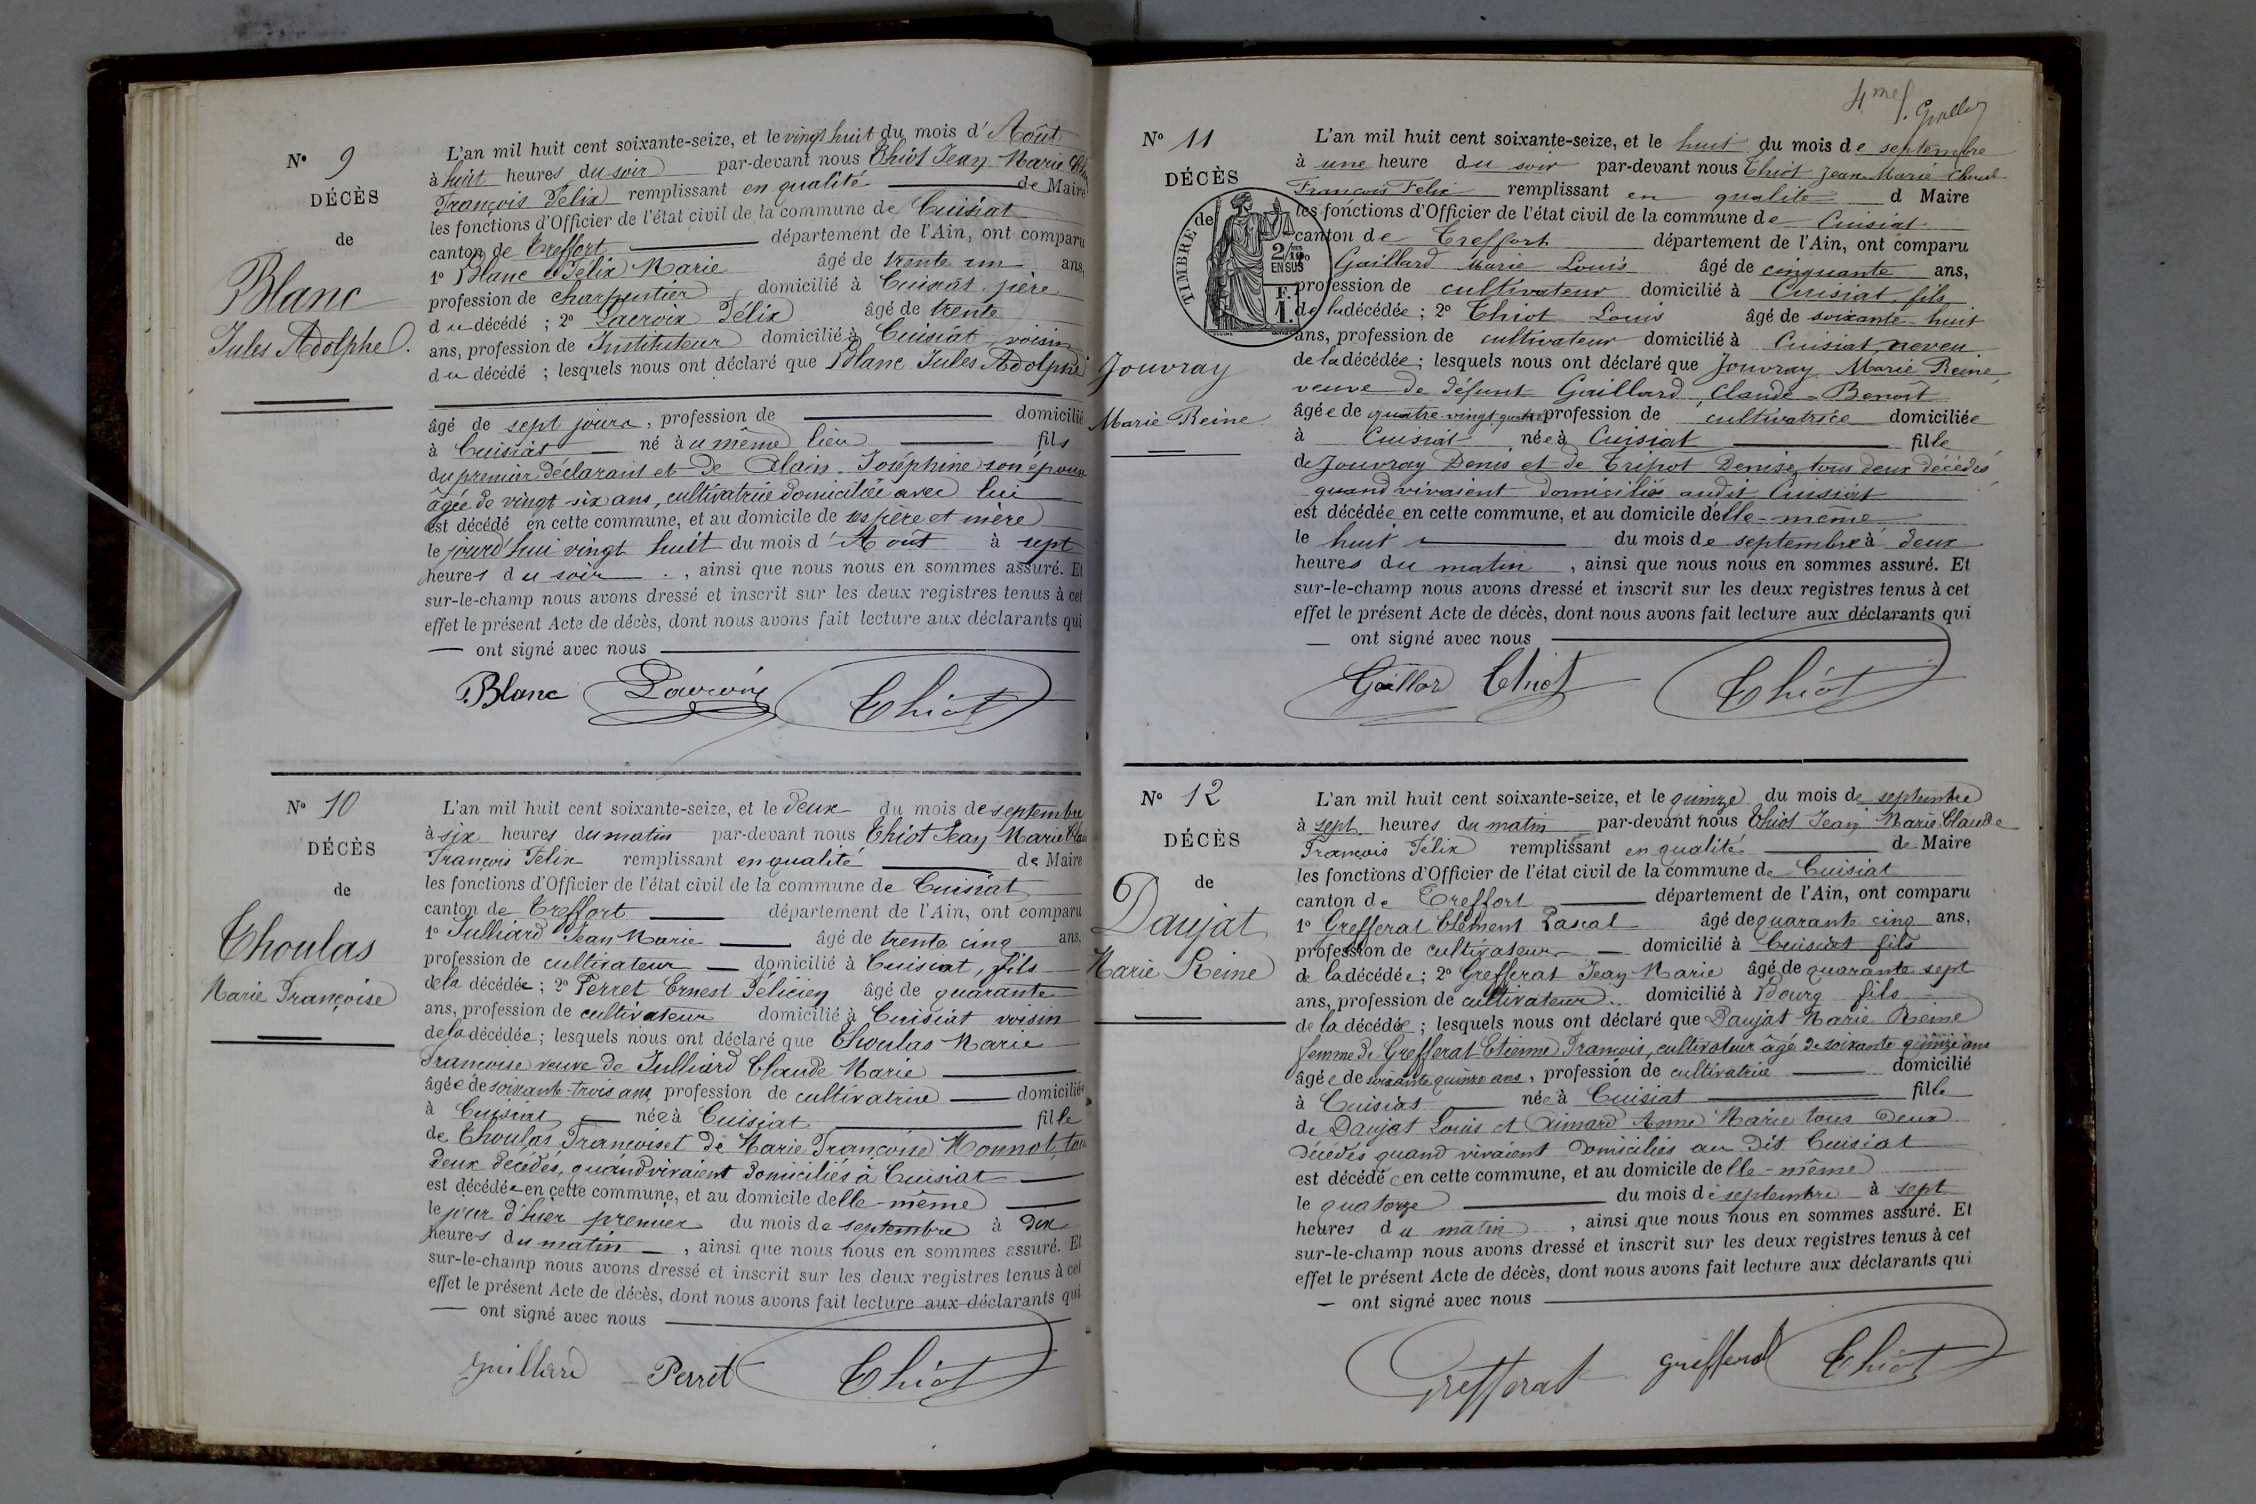 N° 9
DÉCÈS
de
Blanc
Jules Adolphe.
L'an mil huit cent soixante-seize, et le vingt huit du mois d'Août
à huit heures du soir par-devant nous Thiot Jean Marie
François Félix remplissant en qualité de Maire
les fonctions d'Officier de l'état civil de la commune de Cuisiat
canton de Treffort département de l'Ain, ont comparu
1° Blanc Félix Marie âgé de trente un ans,
profession de charpentier domicilié à Cuisiat père
du décédé ; 2° Lacroix Félix âgé de trente
ans, profession de Instituteur domicilié à Cuisiat voisin
du décédé ; lesquels nous ont déclaré que Blanc Jules Adolphe
âgé de sept jours, profession de domicilié
à Cuisiat né au même lieu fils
du premier déclarant et de Alain Joséphine son épouse
âgée de vingt six ans, cultivatrice domiciliée avec lui
est décédé en cette commune, et au domicile de ses père et mère
le jourd'hui vingt huit du mois d'Août à sept
heures du soir, ainsi que nous nous en sommes assuré. Et
sur-le-champ nous avons dressé et inscrit sur les deux registres tenus à cet
effet le présent Acte de décès, dont nous avons fait lecture aux déclarants qui
— ont signé avec nous
Blanc Lacroix Thiot
N° 10
DÉCÈS
de
Thoulas
Marie Françoise
L'an mil huit cent soixante-seize, et le deux du mois de septembre
à six heures du matin par-devant nous Thiot Jean Marie
François Félix remplissant en qualité de Maire
les fonctions d'Officier de l'état civil de la commune de Cuisiat
canton de Treffort département de l'Ain, ont comparu
1° Julliard Jean Marie âgé de trente cinq ans,
profession de cultivateur domicilié à Cuisiat, fils
de la décédée ; 2° Perret Ernest Félicien âgé de quarante
ans, profession de cultivateur domicilié à Cuisiat voisin
de la décédée ; lesquels nous ont déclaré que Thoulas Marie
Françoise veuve de Julliard Claude Marie
âgée de soixante-trois ans, profession de cultivatrice domiciliée
à Cuisiat née à Cuisiat fille
de Thoulas François et de Marie Françoise Monnot, tous
deux décédés, quand vivaient domiciliés à Cuisiat
est décédée en cette commune, et au domicile delle-même
le jour d'hier premier du mois de septembre à dix
heures du matin, ainsi que nous nous en sommes assuré. Et
sur-le-champ nous avons dressé et inscrit sur les deux registres tenus à cet
effet le présent Acte de décès, dont nous avons fait lecture aux déclarants qui
— ont signé avec nous
Perret Thiot
N° 11
DÉCÈS
de
TIMBRE
2/10es
EN SUS
F.
1.
Jouvray
Marie Reine
L'an mil huit cent soixante-seize, et le huit du mois de septembre
à une heure du soir par-devant nous Thiot Jean Marie
François Félix remplissant en qualité d Maire
les fonctions d'Officier de l'état civil de la commune de Cuisiat
canton de Treffort département de l'Ain, ont comparu
Gaillard Marie Louis âgé de cinquante ans,
profession de cultivateur domicilié à Cuisiat fils
de la décédée ; 2° Thiot Louis âgé de soixante-huit
ans, profession de cultivateur domicilié à Cuisiat neveu
de la décédée ; lesquels nous ont déclaré que Jouvray Marie Reine,
veuve de défunt Gaillard Claude-Benoît
âgée de quatre-vingt quatre profession de cultivatrice domiciliée
à Cuisiat née à Cuisiat fille
de Jouvray Denis et de Tripot Denise, tous deux décédés,
quand vivaient domiciliés audit Cuisiat
est décédée en cette commune, et au domicile delle-même
le huit du mois de septembre à deux
heures du matin, ainsi que nous nous en sommes assuré. Et
sur-le-champ nous avons dressé et inscrit sur les deux registres tenus à cet
effet le présent Acte de décès, dont nous avons fait lecture aux déclarants qui
— ont signé avec nous
Thiot Thiot
N° 12
DÉCÈS
de
Daujat
Marie Reine
L'an mil huit cent soixante-seize, et le quinze du mois de septembre
à sept heures du matin par-devant nous Thiot Jean Marie Claude
François Félix remplissant en qualité de Maire
les fonctions d'Officier de l'état civil de la commune de Cuisiat
canton de Treffort département de l'Ain, ont comparu
1° Grefferat Clément Pascal âgé de quarante cinq ans,
profession de cultivateur domicilié à Cuisiat fils
de la décédée ; 2° Grefferat Jean Marie âgé de quarante sept
ans, profession de cultivateur domicilié à Bourg fils
de la décédée ; lesquels nous ont déclaré que Daujat Marie Reine
femme de Grefferat Etienne François, cultivateur âgé de soixante quinze ans
âgée de soixante quinze ans, profession de cultivatrice domicilié
à Cuisiat née à Cuisiat fille
de Daujat Louis et Aimard Anne Marie tous deux
décédés quand vivaient domiciliés au dit Cuisiat
est décédée en cette commune, et au domicile delle-même
le quatorze du mois de septembre à sept
heures du matin, ainsi que nous nous en sommes assuré. Et
sur-le-champ nous avons dressé et inscrit sur les deux registres tenus à cet
effet le présent Acte de décès, dont nous avons fait lecture aux déclarants qui
— ont signé avec nous
Grefferat Grefferat Thiot